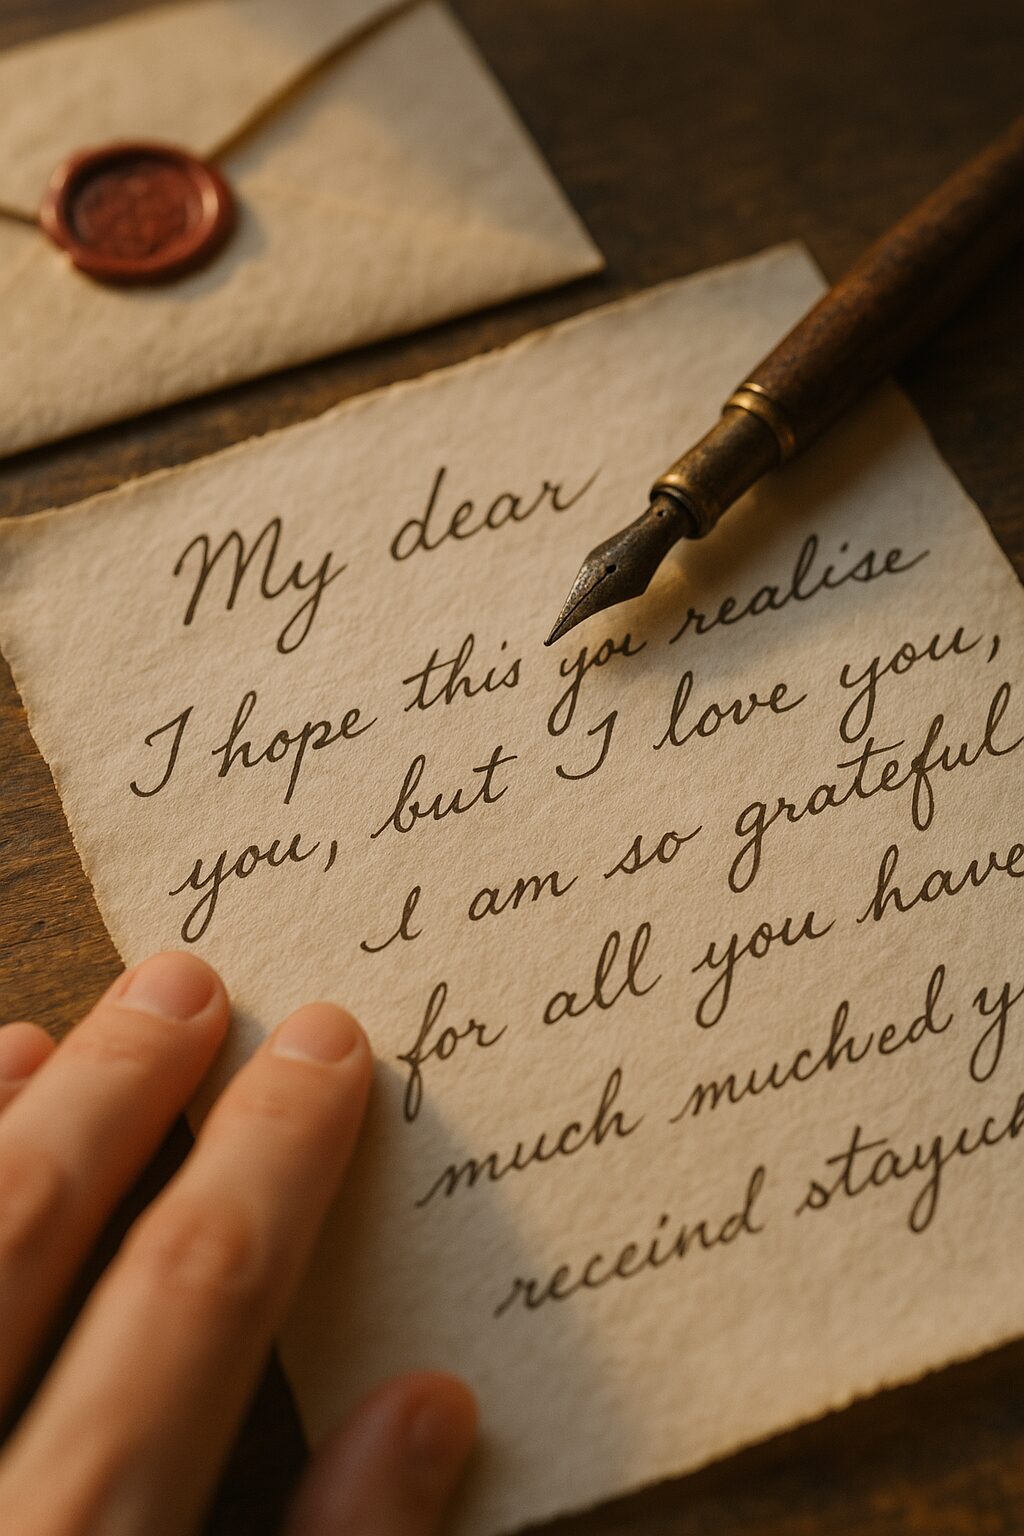 My dear
I hope this you realise
you, but I love you,
I am so grateful
for all you have
much muched y
receind stayuch